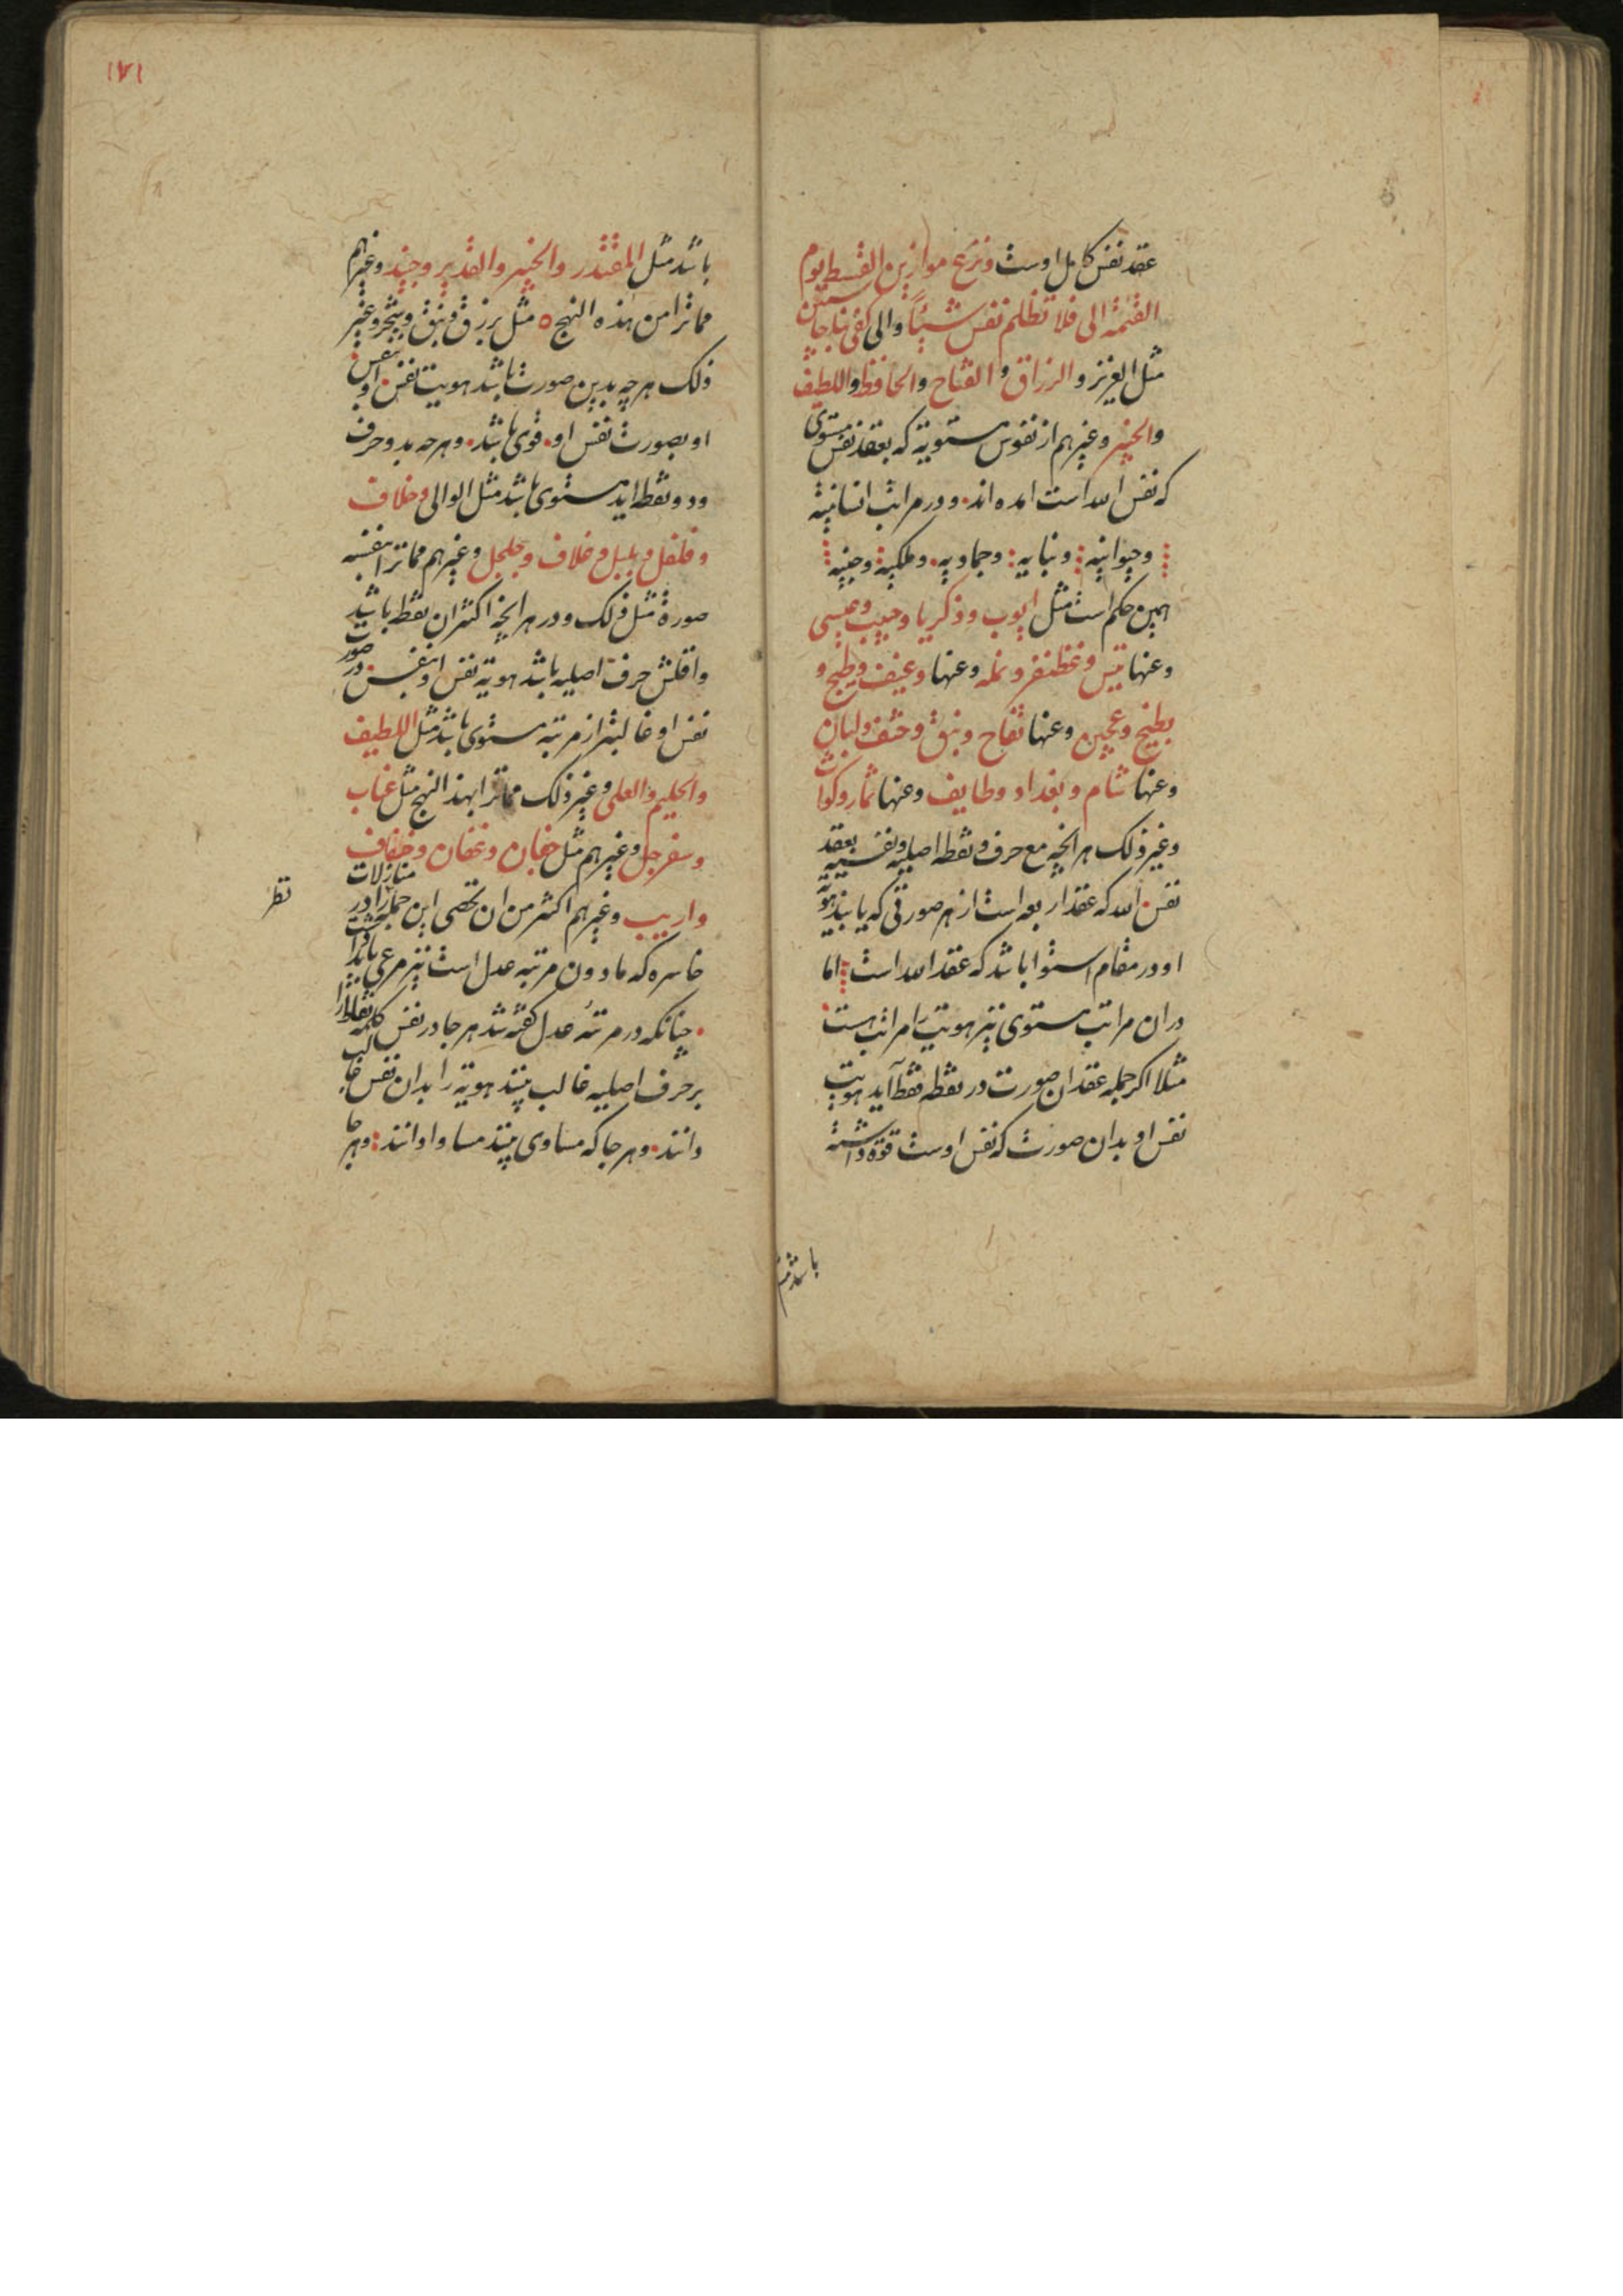 عقد نفس کامل اوست ونزع موازین القسط لیوم
القیمة الی فلا تظلم نفس شیئًا والی کفی بنا حاسبین
مثل العزیز و الرزاق و الفتاح والحافظ واللطیف
والخبیر وغیرهم از نفوس مستویة که بعقد نفس مستوی
که نفس الله است امده اند ودر مراتب انسانیة
وحیوانیه ونباتیه وجمادیه وملکیة وجنیه
همین حکم است مثل ایوب وذکریا وحبیب وعیسی
وعنها تیس وغظنفر ونمله وعنها وعیف وطیح و
بطیخ وعجین وعنها تفاح ونبق ولبان
وعنها شام وبغداد وطایف وعنها ثمار
وغیر ذلک هر انچه مع حرف ونقطه اصلیه ونفسیه بعقد
نفس الله که عقد اربعه است از هر صورتی که یابند هویة
او در مقام استوا باشد که عقد الله است اما
دران مراتب مستوی نیز هویت را مراتب است
مثلا اکر جمله عقد ان صورت در نقطه فقط آید هویت
نفس او بدان صورت که نفس اوست قوة داشته
باشد مثل
۱۷۱
باشد مثل المقتدر والخبیر والقدیر وجنید وغیرهم
مماترا من هذه النهج مثل برزق ونبق وغیر
ذلک هرچه بدین صورت باشد هویت نفس او بنفس
او بصورت نفس او قوی باشد وهرچه بدو حرف
ودو نقطه اید مستوی باشد مثل الوالی وخلاف
وفلفل وبلبل وخلاف وجلجل وغیرهم مماترا بنفسه
صورة مثل ذلک ودر هر انچه اکثر ان نقطه باشد
واقلش حرف اصلیه باشد هویة نفس او بنفس در صورت
نفس او غالبتر از مرتبه مستوی باشد مثل اللطیف
والحلیم والعلی وغیر ذلک مماترا بهذ النهج مثل عناب
وسفرجل وغیرهم مثل خفاف
واریب وغیرهم اکثر من ان تحصی این جمله را در منازلات
خاسره که مادون مرتبه عدل است نیز مرعی باید
چنانکه در مرتبهٔ عدل کفته شد هر جا در نفس کلمه نقاط را
بر حرف اصلیه غالب بینند هویة را بدان نفس غالب
دانند وهر جا که مساوی بینند مساوا دانند وهر جا
نظر